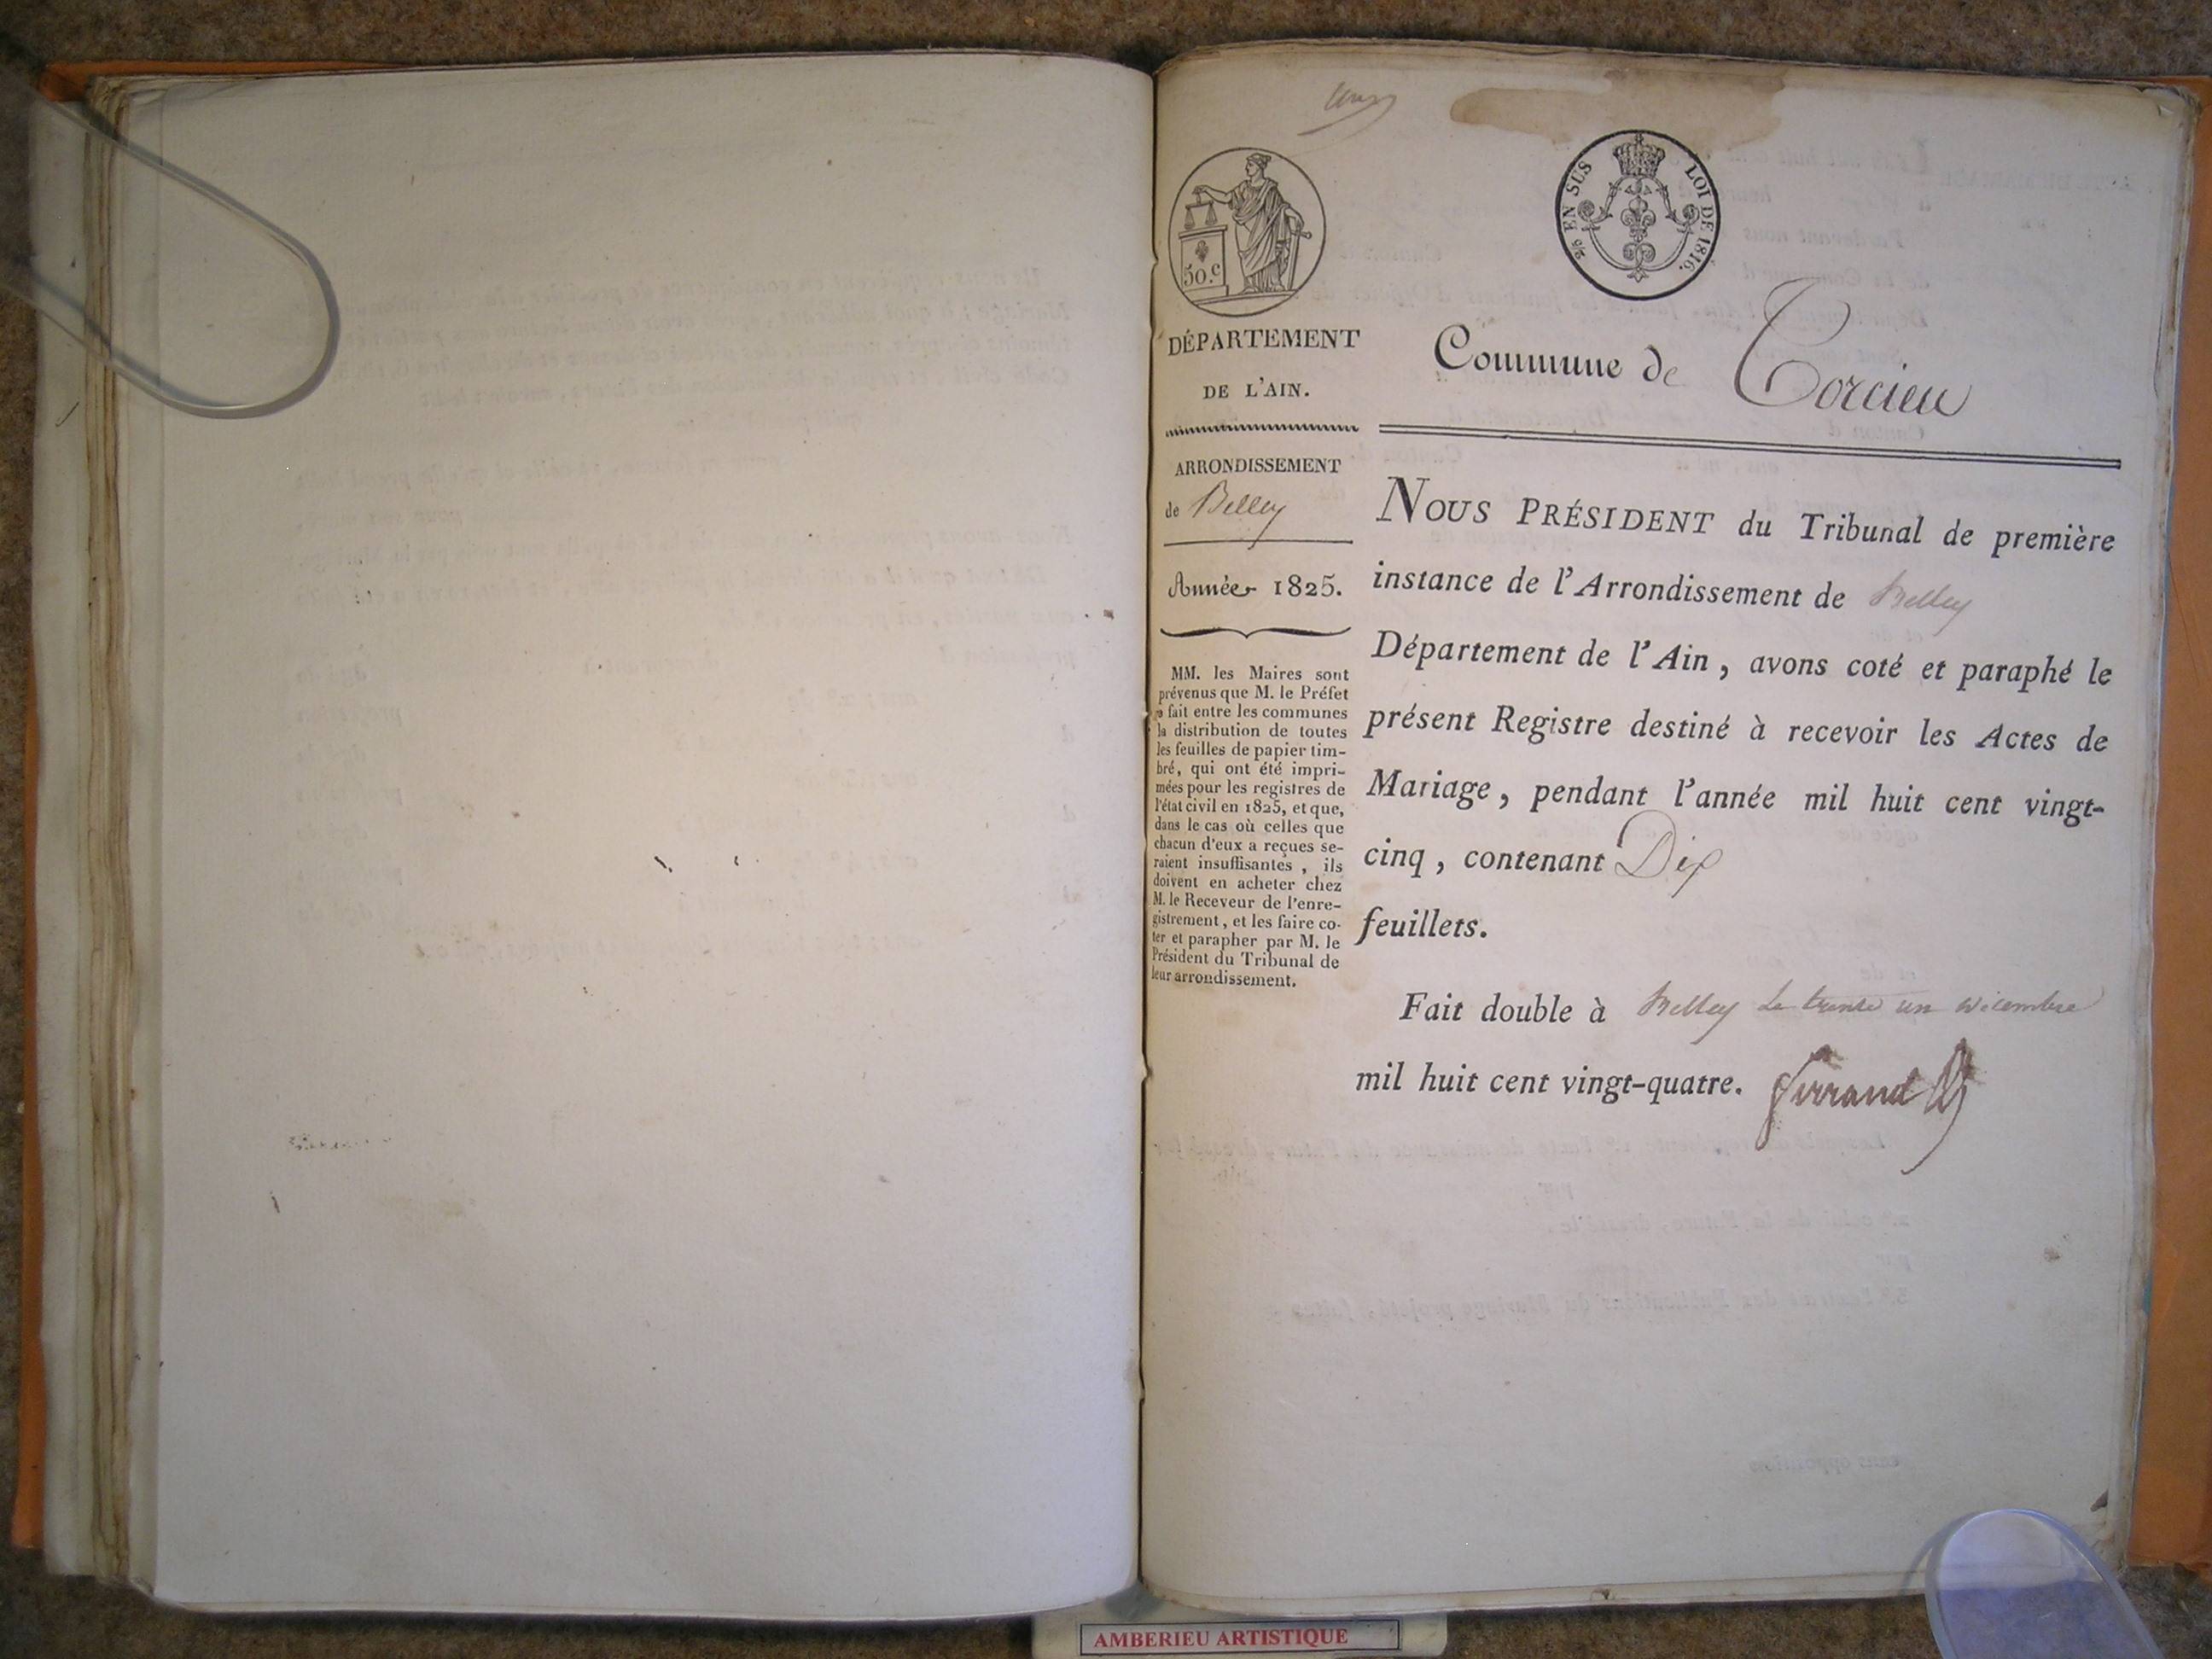 50.c
EN SUS
LOI DE 1816.
DÉPARTEMENT
DE L'AIN.
ARRONDISSEMENT
de Belley
Année 1825.
MM. les Maires sont
prévenus que M. le Préfet
a fait entre les communes
la distribution de toutes
les feuilles de papier tim-
bré, qui ont été impri-
mées pour les registres de
l'état civil en 1825, et que,
dans le cas où celles que
chacun d'eux a reçues se-
raient insuffisantes, ils
doivent en acheter chez
M. le Receveur de l'enre-
gistrement, et les faire co-
ter et parapher par M. le
Président du Tribunal de
leur arrondissement.
Commune de Torcieu
NOUS PRÉSIDENT du Tribunal de première
instance de l'Arrondissement de Belley
Département de l'Ain, avons coté et paraphé le
présent Registre destiné à recevoir les Actes de
Mariage, pendant l'année mil huit cent vingt-
cinq, contenant Dix
feuillets.
Fait double à Belley Le trente un décembre
mil huit cent vingt-quatre. Ferrand
AMBERIEU ARTISTIQUE